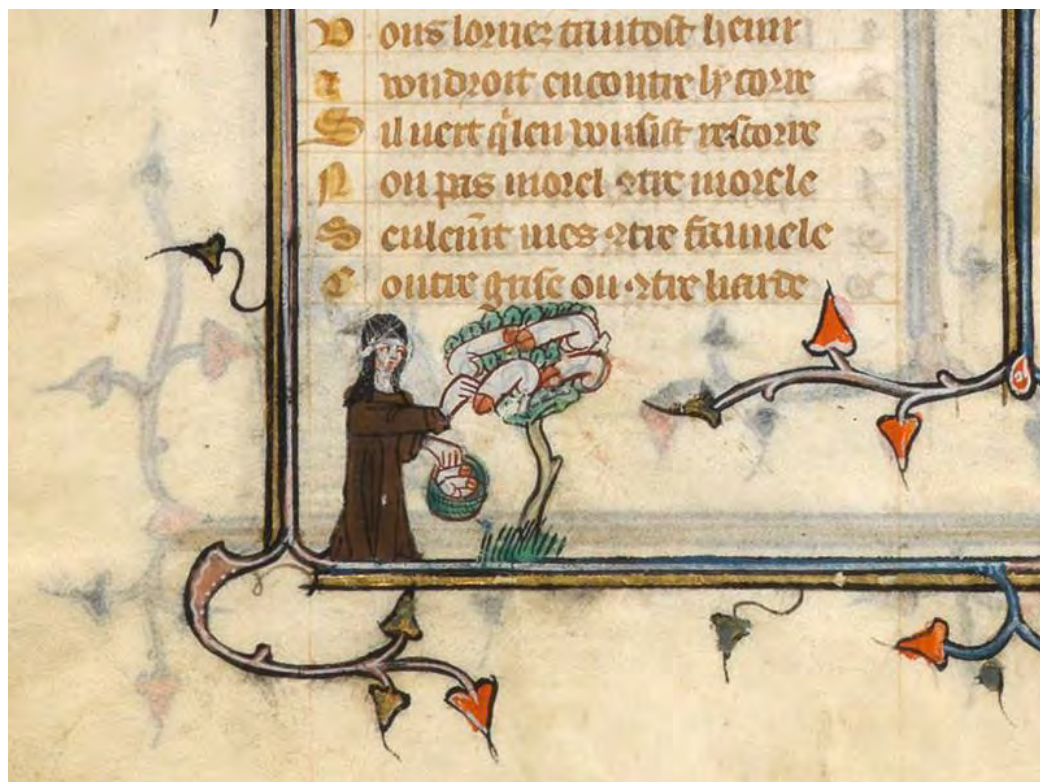 Vous lorriez tantost henir
⁊ voudroit encontre ly corre
Sil nert qͥ len vousist rescorre
Non pas morel ꝯtre morele
Seulem̄t mes ꝯtre fauuele
Contre grise ou ꝯtre liarde